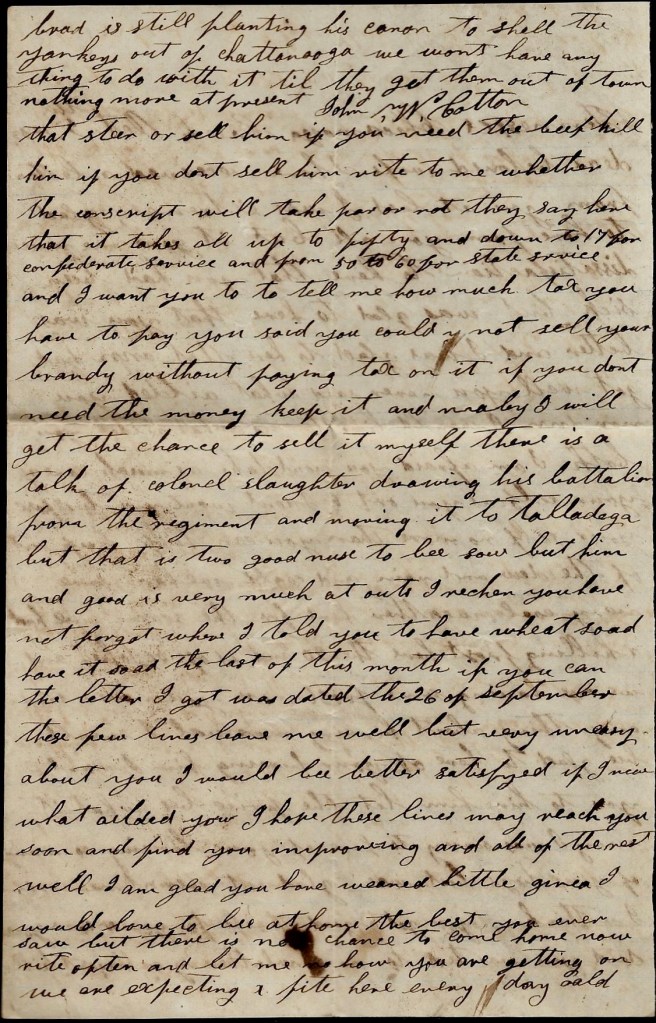 brad is still planting his canon to shell the
yankeys out of chattanooga we wont have any
thing to do with it til they get them out of town
nothing more at present John W. Cotton
that steer or sell him if you need the beef kill
him if you dont sell him rite to me whether
the conscript will take par or not they say here
that it takes all up to fifty and down to 17 for
confederate service and from 50 to 60 for state srvice
and I want you to to tell me how much tax you
have to pay you said you could not sell your
brandy without paying tax on it if you dont
need the money keep it and maby I will
get the chance to sell it myself there is a
talk of colonel slaughter drawing his battalion
from the regiment and moving it to talladega
but that is two good nuse to bee sow but him
and good is very much at outs I rechen you have
not forgot where I told you to have wheat soad
have it soad the last of this month if you can
the letter I got was dated the 26 of september
these few lines leave me well but very uneasy
about you I would bee better satisfyed if I new
what ailded you I hope these lines may reach you
soon and find you improving and all of the rest
well I am glad you have weaned little ginea I
would love to bee at home the best you ever
saw but there is no chance to come home now
rite often and let me no how you are getting on
we are expecting a fite here every day oald